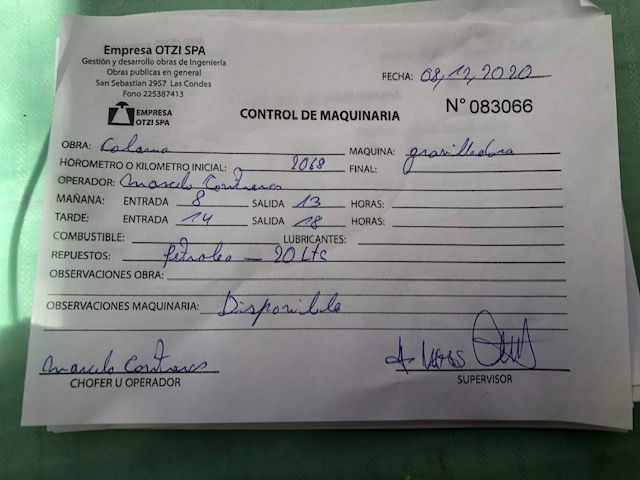 Empresa OTZI SPA
Gestión y desarrollo obras de Ingeniería
Obras publicas en general
San Sebastian 2957 Las Condes
Fono 225387413
EMPRESA
OTZI SPA
FECHA: 08,12,2020
CONTROL DE MAQUINARIA
N° 083066
OBRA: Calama MAQUINA: gravilladora
HOROMETRO O KILOMETRO INICIAL: 2068 FINAL:
OPERADOR: Marcelo Contreras
MAÑANA: ENTRADA 8 SALIDA 13 HORAS:
TARDE: ENTRADA 14 SALIDA 18 HORAS:
COMBUSTIBLE: LUBRICANTES:
REPUESTOS: petroleo — 20 Lts
OBSERVACIONES OBRA:
OBSERVACIONES MAQUINARIA: Disponible
Marcelo Contreras
CHOFER U OPERADOR SUPERVISOR